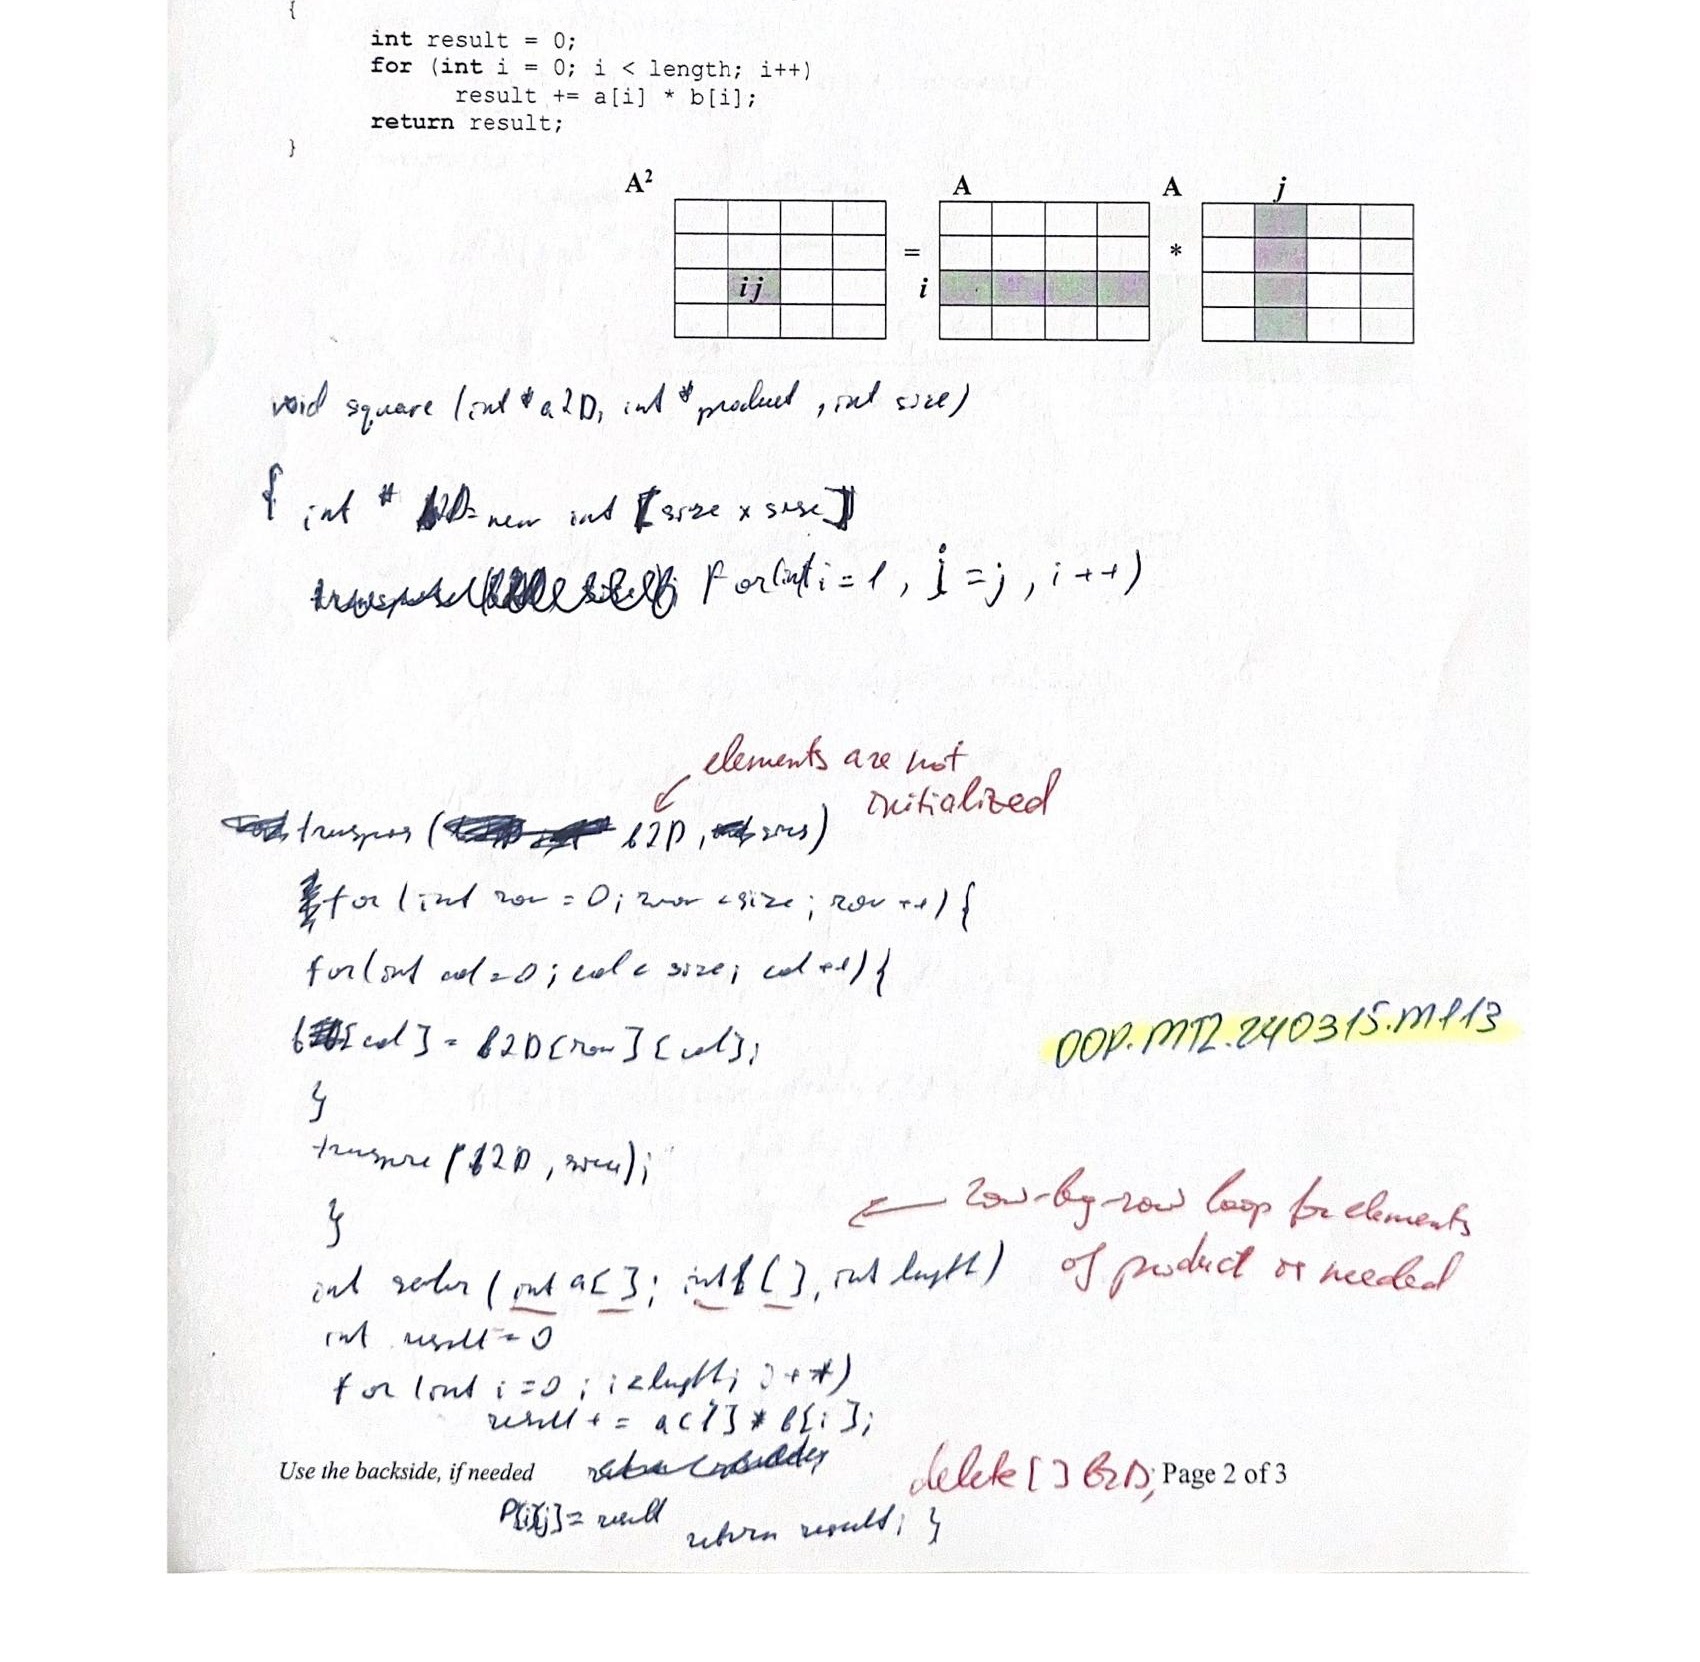 {
int result = 0;
for (int i = 0; i < length; i++)
result += a[i] * b[i];
return result;
}
A² A A j
= *
ij i
void square (int * a2D, int * product , int size)
{ int * b2D = new int [size x size]
for(int i = 1 , j = j , i ++)
elements are not
initialized
transpos ( b2D , size)
for (int row = 0; row < size ; row ++) {
for (int col = 0 ; col < size; col ++) {
b [col] = b2D[row][col];
}
transpose (b2D , size);
}
row-by-row loop for elements
of product is needed
OOP.MT2.240315.M113
int scalar ( int a[ ]; int b [ ], int length )
int result = 0
for (int i = 0 ; i < length; i ++)
result + = a[i] * b[i];
Use the backside, if needed
delete [ ] B2D; Page 2 of 3
P[i][j] = result return result; }